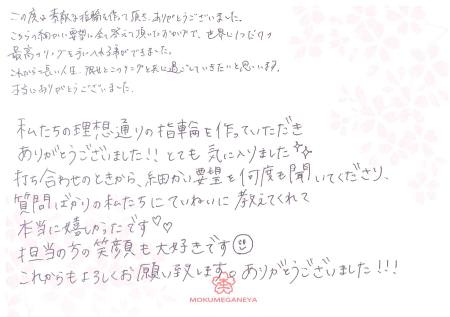 この度は素敵な指輪を作って頂き、ありがとうございました。
こちらの細かい要望にも答えて頂いたおかげで、世界に1つだけの
最高のリングを手に入れる事ができました。
これから長い人生、彼女とこのリングと共に過ごしていきたいと思います。
本当にありがとうございました。
私たちの理想通りの指輪を作っていただき
ありがとうございました!! とても気に入りました
打ち合わせのときから、細かい要望を何度も聞いてくださり、
質問ばかりの私たちにていねいに教えてくれて
本当に嬉しかったです♡♡
担当の方の笑顔も大好きです☺
これからもよろしくお願い致します。ありがとうございました!!!
MOKUMEGANEYA